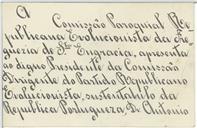 A Comissão Paroquial Re-
publicana Evolucionista da Fre-
guezia de Sta Engracia, apresenta
ao digno Presidente da Comissão
Dirigente do Partido Republicano
Evolucionista, sustentaculo da
Republica Portugueza, Dr. Antonio